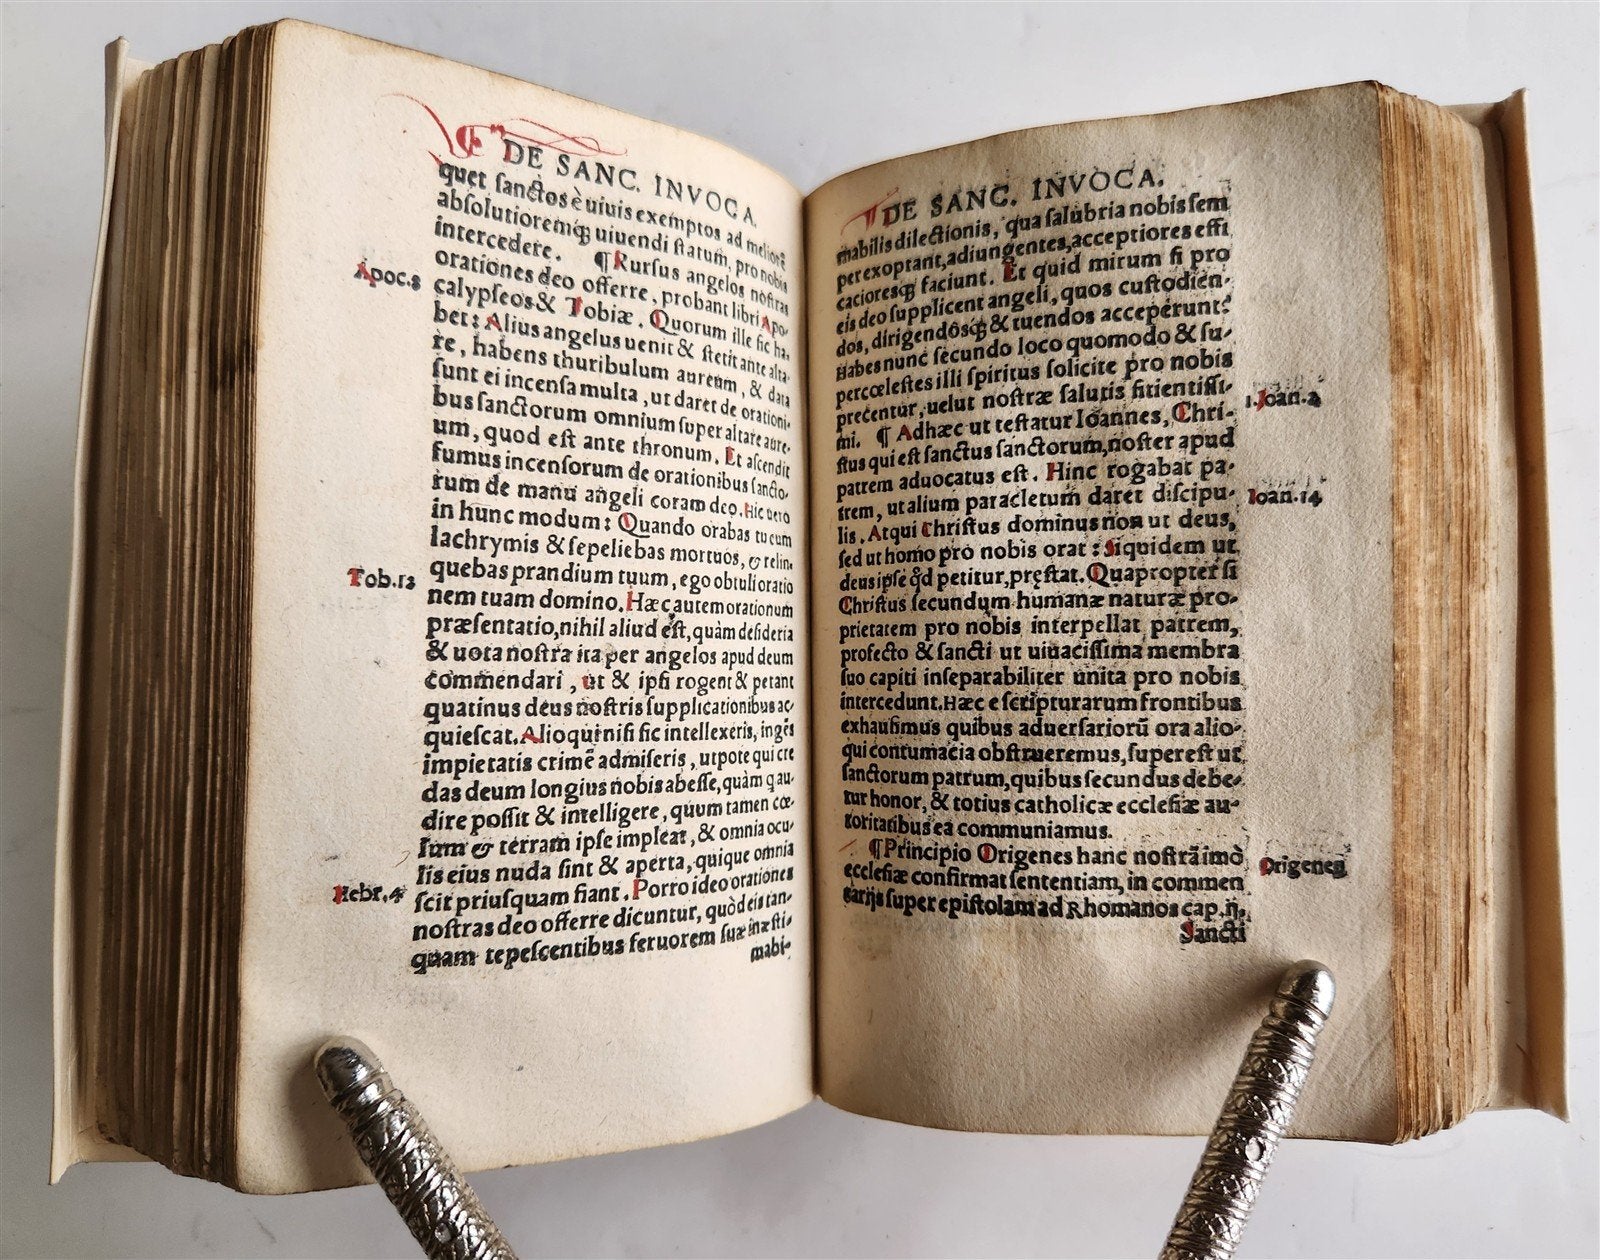 DE SANC. INVOCA.
quet sanctos è uiuis exemptos ad meliorē
absolutioremq; uiuendi statum, pro nobis
intercedere. ¶ Rursus angelos nostras
orationes deo offerre, probant libri Apo-
Apoc.8
calypseos & Tobiæ. Quorum ille sic ha-
bet: Alius angelus uenit & stetit ante alta-
re, habens thuribulum aureum, & data
sunt ei incensa multa, ut daret de orationi-
bus sanctorum omnium super altare aure-
um, quod est ante thronum. Et ascendit
fumus incensorum de orationibus sancto-
rum de manu angeli coram deo. Hic uero
in hunc modum: Quando orabas tu cum
lachrymis & sepeliebas mortuos, & relin-
Tob.12
quebas prandium tuum, ego obtuli oratio
nem tuam domino. Hæc autem orationum
præsentatio, nihil aliud est, quàm desideria
& uota nostra ita per angelos apud deum
commendari, ut & ipsi rogent & petant
quatinus deus nostris supplicationibus ac-
quiescat. Alioqui nisi sic intellexeris, ingēs
impietatis crimē admiseris, utpote qui cre
das deum longius nobis abesse, quàm q au-
dire possit & intelligere, quum tamen cœ-
lum & terram ipse impleat, & omnia ocu-
lis eius nuda sint & aperta, quique omnia
Hebr.4
scit priusquam fiant. Porro ideo orationes
nostras deo offerre dicuntur, quòd eis tan-
quam tepescentibus feruorem suæ inæsti-
mabi-
DE SANC. INVOCA.
mabilis dilectionis, qua salubria nobis sem
per exoptant, adiungentes, acceptiores effi
cacioresq; faciunt. Et quid mirum si pro
eis deo supplicent angeli, quos custodien-
dos, dirigendósq; & tuendos acceperunt?
Habes nunc secundo loco quomodo & su-
percœlestes illi spiritus solicite pro nobis
precentur, uelut nostræ salutis sitientissi-
1.Joan.2
mi. ¶ Adhæc ut testatur Ioannes, Chri-
stus qui est sanctus sanctorum, noster apud
patrem aduocatus est. Hinc rogabat pa-
Ioan.14
trem, ut alium paracletum daret discipu-
lis. Atqui Christus dominus non ut deus,
sed ut homo pro nobis orat: Siquidem ut
deus ipse q̊d petitur, pręstat. Quapropter si
Christus secundum humanæ naturæ pro-
prietatem pro nobis interpellat patrem,
profecto & sancti ut uiuacissima membra
suo capiti inseparabiliter unita pro nobis
intercedunt. Hæc e scripturarum frontibus
exhausimus quibus aduersariorū ora alio-
qui contumacia obstrueremus, superest ut
sanctorum patrum, quibus secundus debe-
tur honor, & totius catholicæ ecclesiæ au-
toritatibus ea communiamus.
¶ Principio Origenes hanc nostrā imò
Origenes
ecclesiæ confirmat sententiam, in commen
tarijs super epistolam ad Rhomanos cap.ij.
Sancti